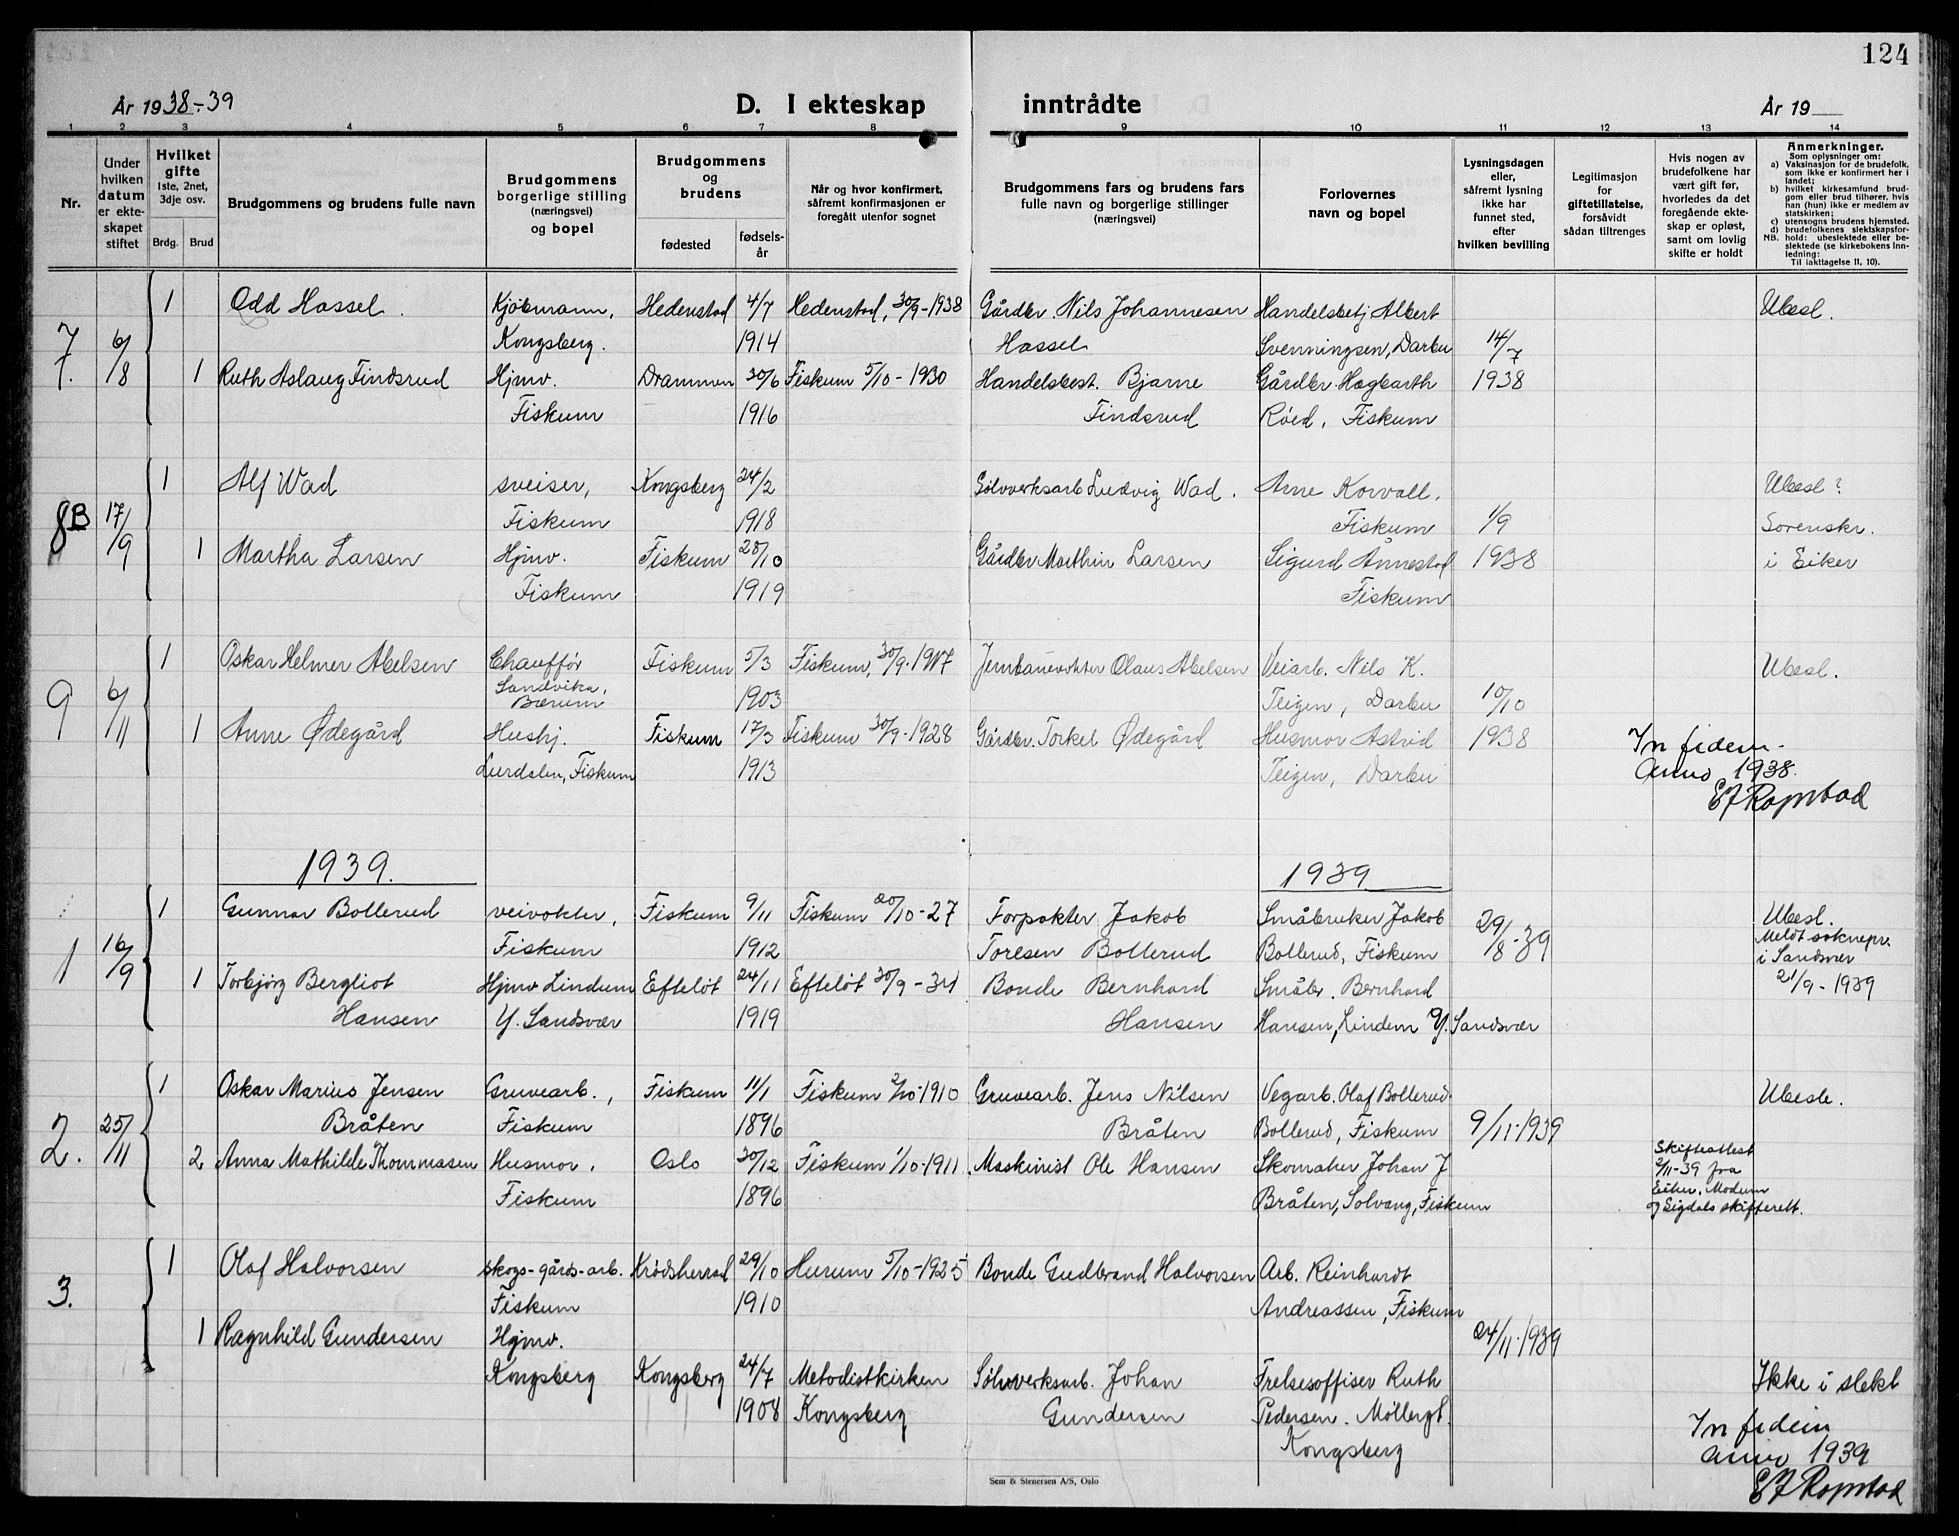 124
År 1938-39
D. I ekteskap inntrådte
År 19
1 2 3 4 5 6 7 8 9 10 11 12 13 14
Nr.
Under hvilken datum er ekteskapet stiftet
Hvilket gifte
1ste, 2net, 3dje osv.
Brdg. Brud
Brudgommens og brudens fulle navn
Brudgommens borgerlige stilling (næringsvei) og bopel
Brudgommens og brudens
fødested
fødselsår
Når og hvor konfirmert, såfremt konfirmasjonen er foregått utenfor sognet
Brudgommens fars og brudens fars fulle navn og borgerlige stillinger (næringsvei)
Forlovernes navn og bopel
Lysningsdagen eller, såfremt lysning ikke har funnet sted, efter hvilken bevilling
Legitimasjon for giftetillatelse, forsåvidt sådan tiltrenges
Hvis nogen av brudefolkene har vært gift før, hvorledes da det foregående ekteskap er opløst, samt om lovlig skifte er holdt
Anmerkninger.
Som oplysninger om:
a) Vaksinasjon for de brudefolk, som ikke er konfirmert her i landet;
b) hvilket kirkesamfund brudgom eller brud tilhører, hvis han (hun) ikke er medlem av statskirken;
c) utensogns brudens hjemsted.
d) brudefolkenes slektskapsforhold: ubeslektede eller beslektede (se kirkebokens innledning:
NB.
Til iakttagelse II, 10).
7. 6/8
1 Odd Hassel Kjöbmann, Hedenstad 4/7 Hedenstad, 30/9-1938 Gårdbr. Nils Johannesen Handelsbetj Albert Ubesl.
Kongsberg. 1914 Hassel Svenningsen, Darbu 14/7
1 Ruth Aslaug Findsrud Hjmv. Drammen 30/6 Fiskum 5/10-1930 Handelsbest. Bjarne Gårdbr. Hagbarth 1938
Fiskum 1916 Findsrud Röed, Fiskum
8B 17/9
1 Alf Wad sveiser, Kongsberg 24/2 Sölvverksarb Ludvig Wad. Arne Korvall, Ubesl?
Fiskum 1918 Fiskum 1/9 Sorenskr.
1 Martha Larsen Hjmv. Fiskum 28/10 Gårdbr Marthin Larsen Sigurd Annestad 1938 i Eiker
Fiskum 1919 Fiskum
9 6/11
1 Oskar Helmer Abelsen Chauffør Fiskum 5/3 Fiskum, 30/9-1917 Jernbanevokter Olaus Abelsen Veiarb. Nils K. Ubesl.
Sandvika, Bærum 1903 Teigen, Darbu 10/10
1 Anne Ødegård Hushj. Fiskum 17/3 Fiskum 30/9-1928 Gårdbr. Torkel Ødegård Husmor Astrid 1938
Lurdalen, Fiskum 1913 Teigen, Darbu
In fidem
Anno 1938.
EJ Ropstad
1939. 1939
1 16/9
1 Gunnar Bollerud veivokter, Fiskum 9/11 Fiskum 20/10-27 Forpakter Jakob Småbruker Jakob 29/8-39 Ubesl.
Fiskum 1912 Toresen Bollerud Bollerud, Fiskum Meldt soknepr. i Sandsvær
1 Torbjörg Bergliot Hjmv Lindum Efteløt 24/11 Efteløt 30/9-34 Bonde Bernhard Småbr. Bernhard 21/9-1939
Hansen Y. Sandsvær 1919 Hansen Hansen, Lindem Y. Sandsvær
2. 25/11
1 Oskar Marius Jensen Gruvearb., Fiskum 11/1 Fiskum 2/10-1910 Gruvearb. Jens Nilsen Vegarb. Olaf Bollerud Ubesle.
Bråten Fiskum 1896 Bråten Bollerud, Fiskum 9/11-1939
2 Anna Mathilde Thommasen Husmor, Oslo 30/12 Fiskum 1/10-1911 Maskinist Ole Hansen Skomaker Johan J
Fiskum 1896 Bråten, Solvang, Fiskum
Skifteattest
2/11-39 fra
Eiker, Modum
og Sigdals skifterett.
3.
1 Olaf Halvorsen skogs-gårds-arb. Krødsherad 29/10 Hurum 5/10-1925 Bonde Gudbrand Halvorsen Arb. Reinhardt
Fiskum 1910 Andreassen, Fiskum
1 Ragnhild Gundersen Hjmv. 24/11-1939
Kongsberg Kongsberg 24/7 Metodistkirken Sölvverksarb. Johan Frelsesoffiser Ruth Ikke i slekt
1908 Kongsberg Gundersen Pedersen. Möllergt.
Kongsberg
In fidem
anno 1939
EJ Ropstad
Sem & Stenersen A/S, Oslo